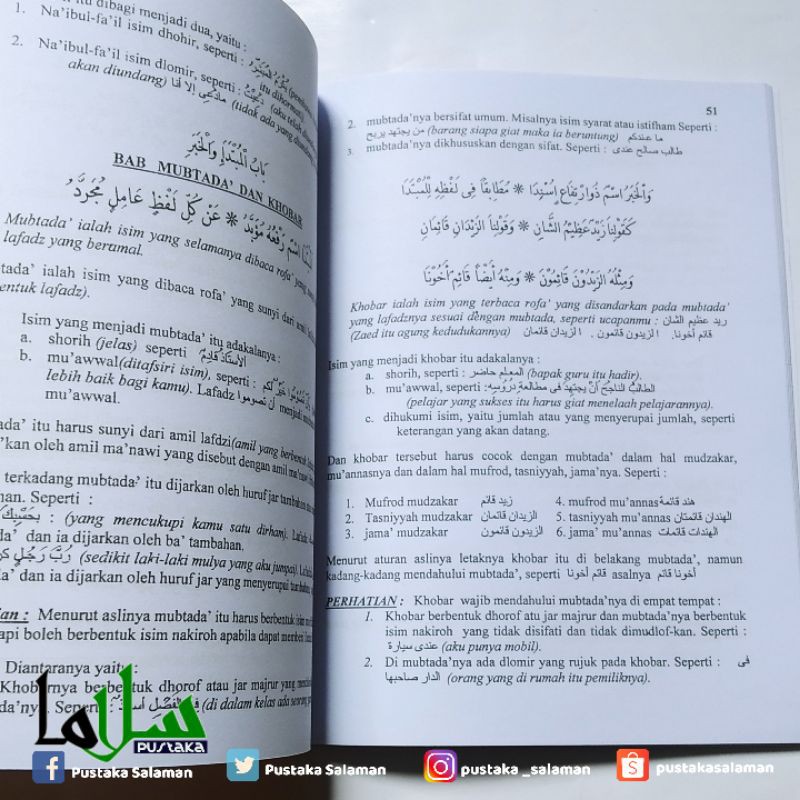 itu dibagi menjadi dua, yaitu :
1. Na'ibul-fa'il isim dhohir, seperti :
itu dihormati)
2. Na'ibul-fa'il isim dlomir, seperti : دُعِيْتُ (aku telah
akan diundang) مادُعِي إلا أنا (tidak ada yang
بَابُ الْمُبْتَدَإِ وَالْخَبَرِ
BAB MUBTADA' DAN KHOBAR
اسْمٌ رَفْعُهُ مُؤَبَّدُ * عَنْ كُلِّ لَفْظٍ عَامِلٍ مُجَرَّدُ
Mubtada' ialah isim yang selamanya dibaca rofa'
lafadz yang beramal.
tada' ialah isim yang dibaca rofa' yang sunyi dari amil
entuk lafadz).
Isim yang menjadi mubtada' itu adakalanya :
a. shorih (jelas) seperti الأستاذ قادم
b. mu'awwal(ditafsiri isim), seperti : تَصُوْمُوا خَيْرٌ لَكم
lebih baik bagi kamu). Lafadz أن تصوموا menjadi
mu'awwal.
ada' itu harus sunyi dari amil lafdzi(amil yang berbentuk
'kan oleh amil ma'nawi yang disebut dengan amil
terkadang mubtada' itu dijarkan oleh huruf jar tambahan
nan. Seperti :
بِحَسْبِكَ : (yang mencukupi kamu satu dirham). Lafadz
da' dan ia dijarkan oleh ba' tambahan.
رُبَّ رَجُلٍ (sedikit laki-laki mulya yang aku jumpai). Lafadz
da' dan ia dijarkan oleh huruf jar yang menyerupai
ian : Menurut aslinya mubtada' itu harus berbentuk isim
api boleh berbentuk isim nakiroh apabila dapat memberi
Diantaranya yaitu
Khobarnya berbentuk dhorof atau jar majrur yang
da'nya. Seperti : (di dalam kelas ada seorang
51
2. mubtada'nya bersifat umum. Misalnya isim syarat atau istifham Seperti :
ما عندكم (barang siapa giat maka ia beruntung) من يجتهد يربح
3. mubtada'nya dikhususkan dengan sifat. Seperti : طالب صالح عندى
وَالْخَبَرُ اسْمٌ ذُوارْتِفَاعٍ اُسْنِدَا * مُطَابِقاً فِى لَفْظِهِ لِلْمُبْتَدَا
كَقَوْلِنَا زَيْدٌ عَظِيْمُ الشَّانِ * وَقَوْلِنَا الزَّيْدَانِ قَائِمَانِ
وَمِثْلُهُ الزَّيْدُوْنَ قَائِمُوْنَ * وَمِنْهُ أَيْضاً قَائِمٌ أَخُوْنَا
Khobar ialah isim yang terbaca rofa' yang disandarkan pada mubtada'
yang lafadznya sesuai dengan mubtada, seperti ucapanmu : زيد عظيم الشان
(Zaed itu agung kedudukannya) قائم أخونا. الزيدون قائمون . الزيدان قائمان
Isim yang menjadi khobar itu adakalanya :
a. shorih, seperti : المعلم حاضر (bapak guru itu hadir).
b. mu'awwal, seperti : الطالبُ الناجحُ أنْ يجتهدَ فى مطالعةِ دُرُوسِهِ
(pelajar yang sukses itu harus giat menelaah pelajarannya).
c. dihukumi isim, yaitu jumlah atau yang menyerupai jumlah, seperti
keterangan yang akan datang.
Dan khobar tersebut harus cocok dengan mubtada' dalam hal mudzakar,
mu'annasnya dan dalam hal mufrod, tasniyyah, jama'nya. Seperti :
1. Mufrod mudzakar زيد قائم 4. mufrod mu'annas هند قائمة
2. Tasniyyah mudzakar الزيدان قائمان 5. tasniyyah mu'annas الهندان قائمتان
3. jama' mudzakar الزيدون قائمون 6. jama' mu'annas الهندات قائمات
Menurut aturan aslinya letaknya khobar itu di belakang mubtada', namun
kadang-kadang mendahului mubtada', seperti قائم أخونا asalnya أخونا قائم
PERHATIAN : Khobar wajib mendahului mubtada'nya di empat tempat :
1. Khobar berbentuk dhorof atu jar majrur dan mubtada'nya berbentuk
isim nakiroh yang tidak disifati dan tidak dimudlof-kan. Seperti :
عندى سيارة (aku punya mobil).
2. Di mubtada'nya ada dlomir yang rujuk pada khobar. Seperti : فى
الدار صاحبها (orang yang di rumah itu pemiliknya).
سلاما
PUSTAKA
Pustaka Salaman
Pustaka Salaman
pustaka _salaman
pustakasalaman